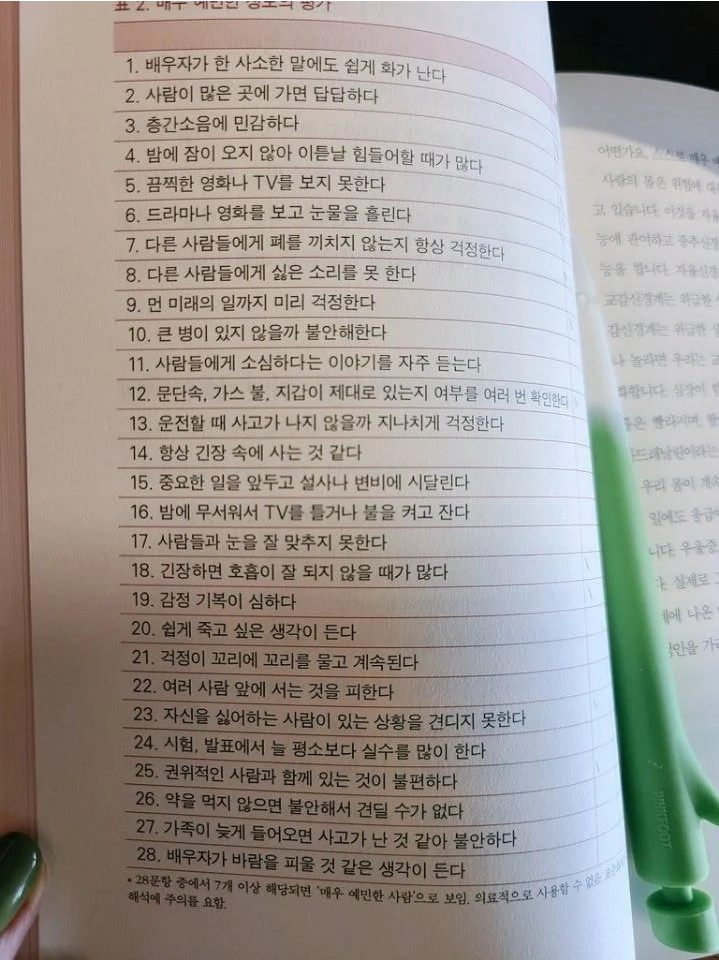 표 2. 매우 예민한 정도의 평가
1. 배우자가 한 사소한 말에도 쉽게 화가 난다
2. 사람이 많은 곳에 가면 답답하다
3. 층간소음에 민감하다
4. 밤에 잠이 오지 않아 이튿날 힘들어할 때가 많다
5. 끔찍한 영화나 TV를 보지 못한다
6. 드라마나 영화를 보고 눈물을 흘린다
7. 다른 사람들에게 폐를 끼치지 않는지 항상 걱정한다
8. 다른 사람들에게 싫은 소리를 못 한다
9. 먼 미래의 일까지 미리 걱정한다
10. 큰 병이 있지 않을까 불안해한다
11. 사람들에게 소심하다는 이야기를 자주 듣는다
12. 문단속, 가스 불, 지갑이 제대로 있는지 여부를 여러 번 확인한다
13. 운전할 때 사고가 나지 않을까 지나치게 걱정한다
14. 항상 긴장 속에 사는 것 같다
15. 중요한 일을 앞두고 설사나 변비에 시달린다
16. 밤에 무서워서 TV를 틀거나 불을 켜고 잔다
17. 사람들과 눈을 잘 맞추지 못한다
18. 긴장하면 호흡이 잘 되지 않을 때가 많다
19. 감정 기복이 심하다
20. 쉽게 죽고 싶은 생각이 든다
21. 걱정이 꼬리에 꼬리를 물고 계속된다
22. 여러 사람 앞에 서는 것을 피한다
23. 자신을 싫어하는 사람이 있는 상황을 견디지 못한다
24. 시험, 발표에서 늘 평소보다 실수를 많이 한다
25. 권위적인 사람과 함께 있는 것이 불편하다
26. 약을 먹지 않으면 불안해서 견딜 수가 없다
27. 가족이 늦게 들어오면 사고가 난 것 같아 불안하다
28. 배우자가 바람을 피울 것 같은 생각이 든다
* 28문항 중에서 7개 이상 해당되면 '매우 예민한 사람'으로 보임. 의료적으로 사용할 수 없음.
해석에 주의를 요함.
어떤가요, 스스로 매우
사람의 몸은 위험에
고 있습니다. 이것을
능에 관여하고 중추신경
능을 합니다. 자율신경
교감신경계는 위급한
감신경계는 위급한
나 놀라면 우리는
심장이
빨라지며
우리 몸이 계속
일에도 응급
니다. 우울증
실제로
에 나온